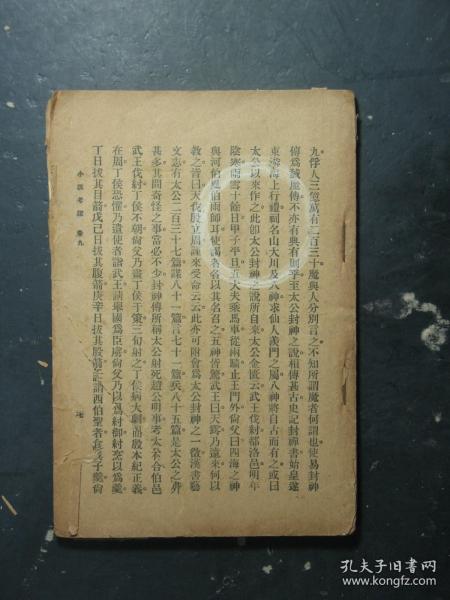 九俘人三億萬有二百三十魔與人分別言之不知所謂魔者何謂也使易封神
傳為誠魔傳不亦有典有則乎至太公封神之說相傳甚古史記封禪書始皇遂
東游海上行禮祠名山大川及八神求仙人羨門之屬八神將自古而有之或曰
太公以來作之此卽太公封神之說所自來太公金匱云武王伐紂都洛邑明年
陰寒雨雪十餘日甲子平旦五大夫乘馬車從兩騎止王門外尙父曰四海之神
與河伯風伯雨師耳使謁者各以其名召之五神皆驚武王曰天陰乃遠來何以
教之皆曰天伐殷立周謹來受命云云此亦可附會為太公封神之一徵漢書藝
文志有太公二百三十七篇謀八十一篇言七十一篇兵八十五篇是太公之書
甚多其間奇怪之事當必不少封神傳所稱太公射死趙公明事考太公金匱
武王伐紂丁侯不朝尙父乃畫丁侯于策三旬射之丁侯病大劇而殷本紀正義
在周丁侯恐懼乃遣使者請武王請舉國為臣虜尙父乃以
丁日拔其目箭戊己日拔其腹箭庚辛日拔其股箭
小說考證 卷九
孔夫子旧书网
www.kongfz.com